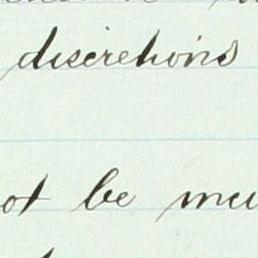 discretions
ot be mu